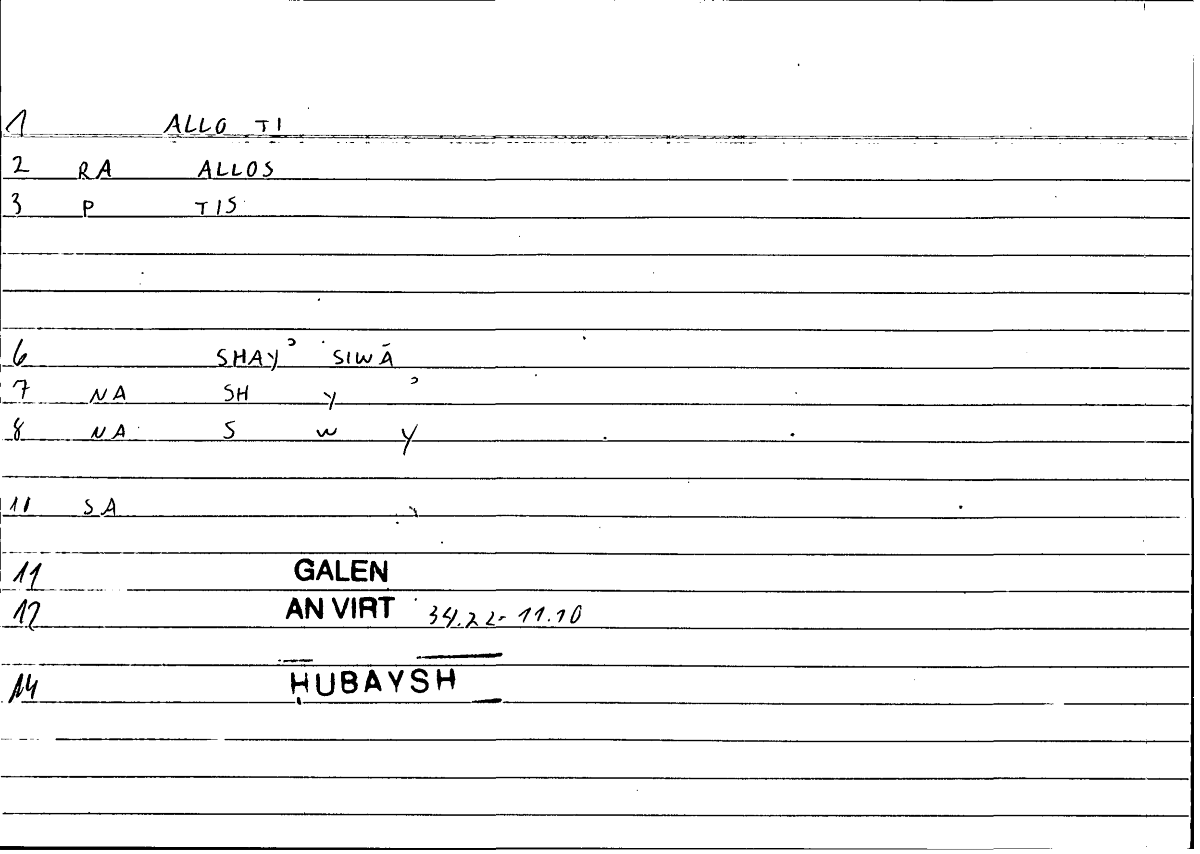 1 ALLO TI
2 RA ALLOS
3 P TIS
6 SHAYʾ SIWĀ
7 NA SH Y ʾ
8 NA S W Y
10 SA
11 GALEN
12 AN VIRT 34.22-11.10
14 ḤUBAYSH